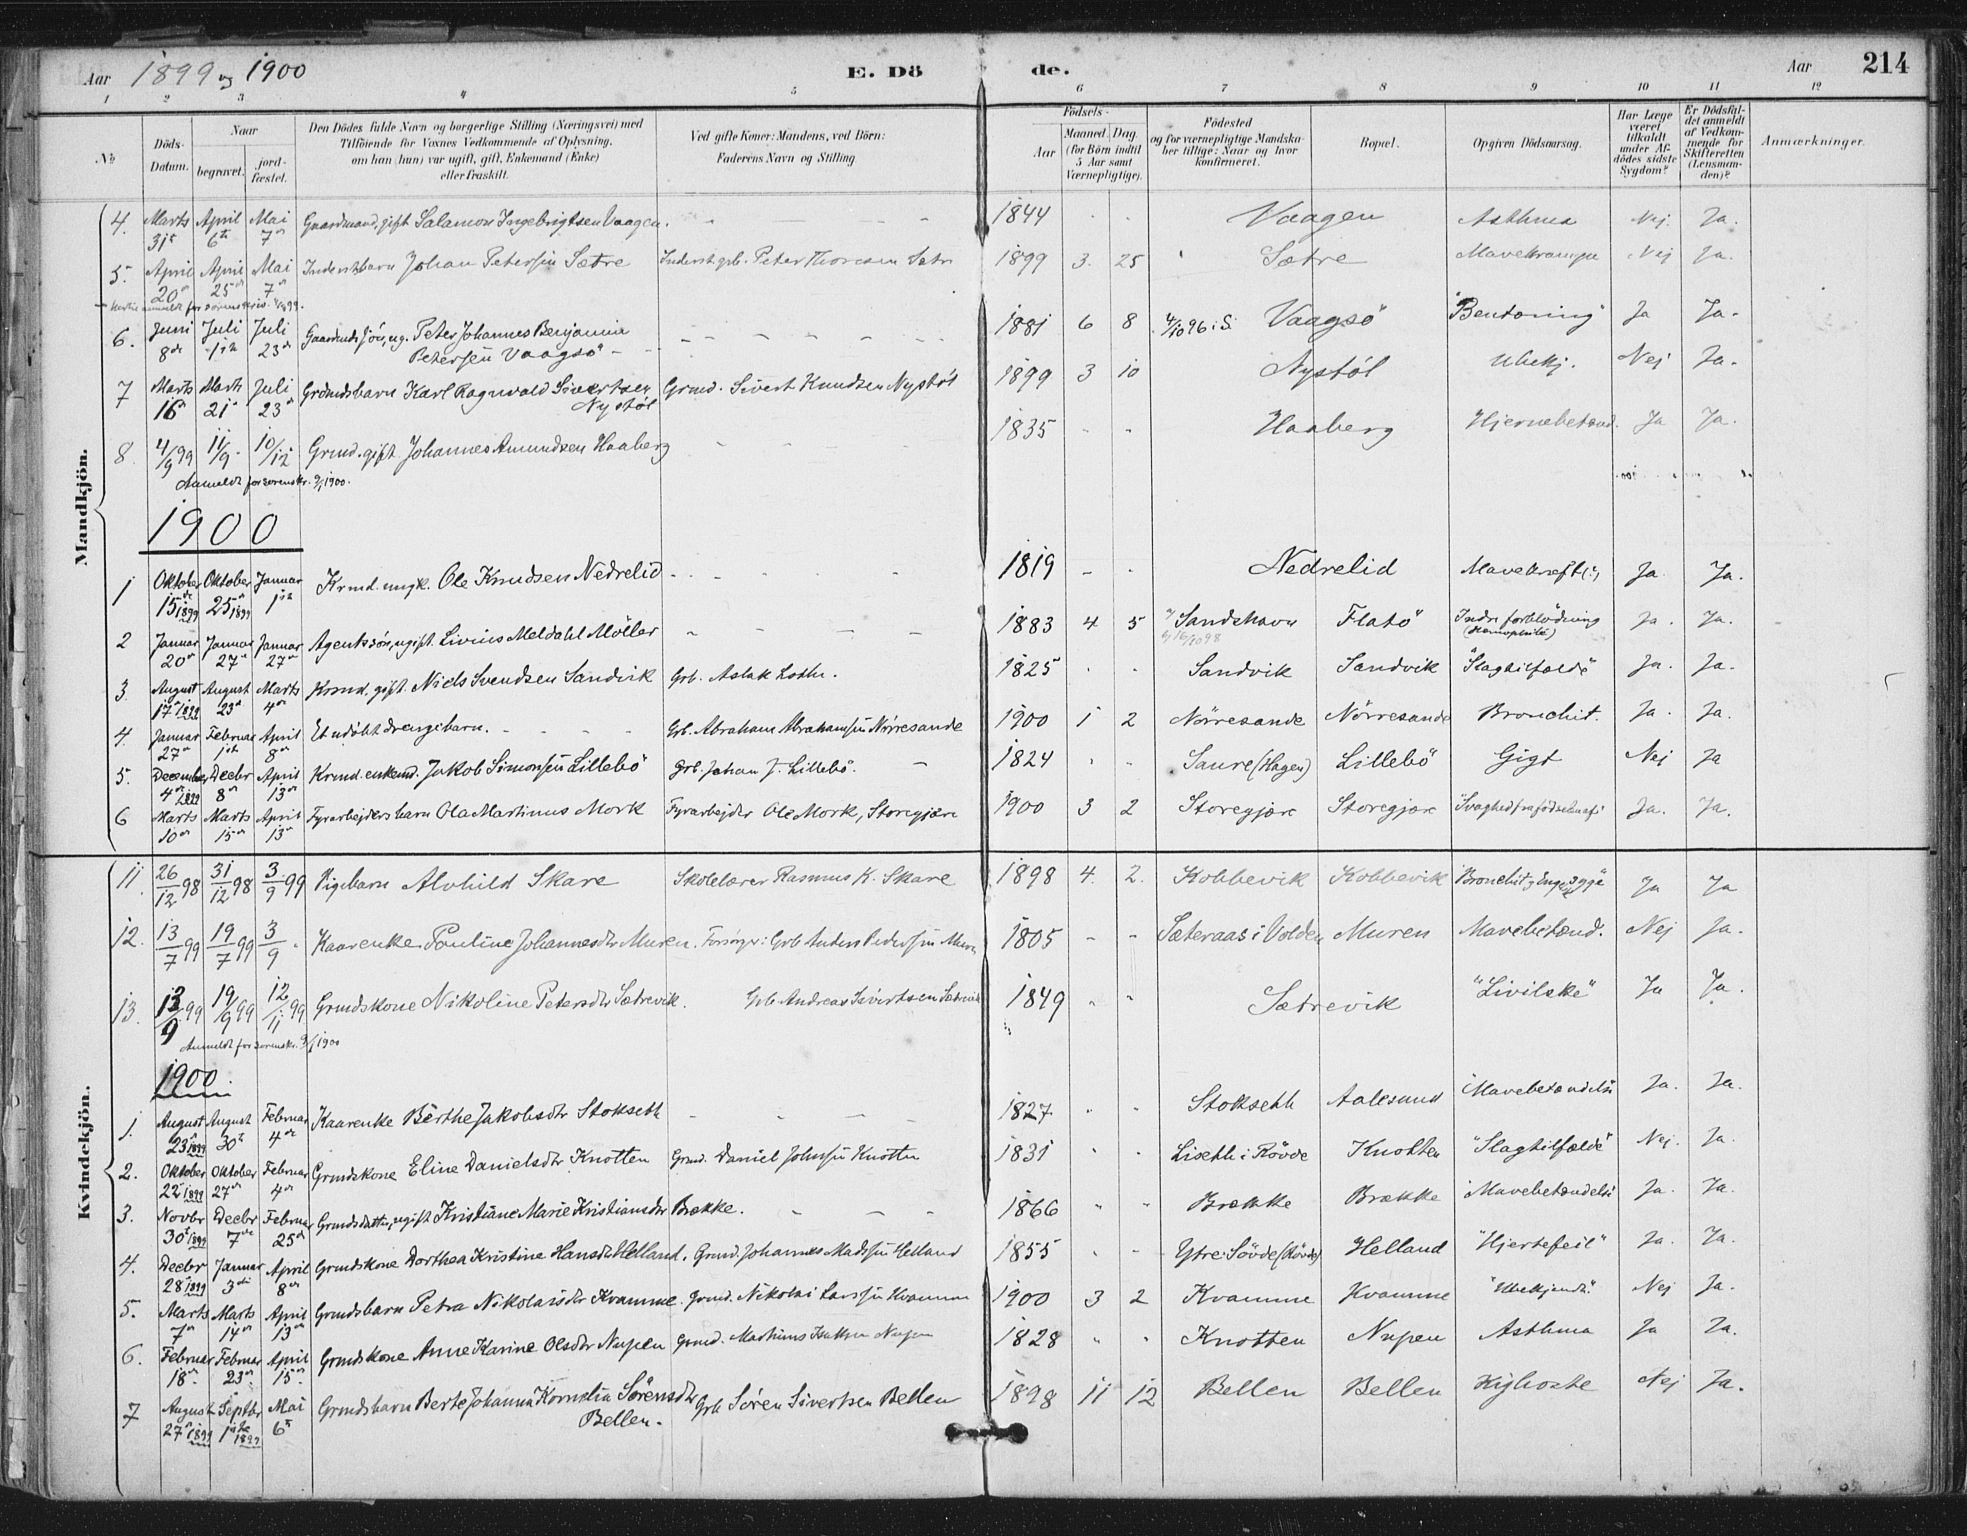 Aar 1899 og 1900 E. Dö de. Aar 214
1 2 3 4 5 6 7 8 9 10 11 12
No Döds-Datum. Naar begravet. jord-fæstet. Den Dödes fulde Navn og borgerlige Stilling (Næringsvei) med Tilföiende for Voxnes Vedkommende af Oplysning, om han (hun) var ugift, gift, Enkemand (Enke) eller fraskilt. Ved gifte Koner: Mandens, ved Börn: Faderens Navn og Stilling Födsels- Aar Maaned. Dag. (for Börn indtil 5 Aar samt Værnepligtige). Födested og for værnepligtige Mandskaber tillige: Naar og hvor konfirmeret. Bopæl. Opgiven Dödsaarsag. Har Læge været tilkaldt under Afdödes sidste Sygdom? Er Dödsfaldet anmeldt af Vedkommende for Skifteretten (Lensmanden)? Anmærkninger.
Mandkjön.
4. Marts 31te April 6te Mai 7de Gaardmand, gift Salamon Ingebrigtsen Vaagen. 1844 Vaagen Asthma Nej. Ja.
5. April 20de April 25de Mai 7de Inderstbarn Johan Petersen Sætre Inderst, grb. Peter Thoresen Sætre 1899 3. 25 Sætre Mavekrampe Nej Ja.
6. Juni 8de Juli 1ste Juli 23de Gaardmds sön, ug. Peter Johannes Benjamin Petersen Vaagsö 1881 6 8 4/10 96 i S. Vaagsö "Bentæring" Ja Ja.
7 Marts 16de Marts 21de Juli 23de Grdmdsbarn Karl Ragnvald Sivertsen Nystöl Grmd. Sivert Knudsen Nystöl 1899 3 10 Nystöl Ubekj. Nej Ja.
8. 4/9 99 11/9. 10/12 Grmd. gift Johannes Amundsen Haaberg 1835 Haaberg Hjernebetænd. Ja Ja.
Anmeldt for sorenskr. 9/1 1900.
1900
1 Oktober 15de 1899 Oktober 25de 1899 Januar 1ste Krmd. ungk. Ole Knudsen Nedrelid 1819 Nedrelid Mavekræft (?) Ja Ja.
2 Januar 20de Januar 27de Januar 27de Agentssön, ugift. Livius Meldahl Möller 1883 4 5 Sandshavn Flatö Indre forblödning (Hæmophili) Ja. Ja.
3. August 17de 1899 August 23de Marts 4de Krmd. gift. Niels Svendsen Sandvik Grb. Aslak Lothe. 1825 Sandvik Sandvik "Slagtilfælde" Ja. Ja.
4. Januar 27de Februar 1ste April 8de Et udöbt drengebarn. Grb. Abraham Abrahamsen Nörresande 1900 1 2 Nörresande Nörresande Bronchit. Ja. Ja.
5. December 4de 1899 Decbr 8de April 13de Krmd. enkemd. Jakob Simonsen Lillebö grb. Johan J. Lillebö. 1824 Saure (Hagen) Lillebö Gigt Nej Ja
6 Marts 10de Marts 15de April 13de Fyrarbejders barn Ola Martinus Mork Fyrarbejder Ole Mork, Storegjære 1900 3 2 Storegjære Storegjære "Svaghed fra födselen af" Ja. Ja.
Kvindekjön.
11. 26/12 98 31/12 98 3/9 99 Pigebarn Alvhild Skare Skolelærer Rasmus K. Skare 1898 4. 2. Kobbevik Kobbevik Ja Ja
12. 13/7 99 19/7 99 3/9 Kaarenke Pauline Johannesdtr Muren. Forsörger: Grb Anders Pedersen Muren 1805 Sæteraas i Volden Muren Mavebetænd. Nej Ja.
13. 13/9 99 19/9 99 12/11 99 Grmdskone Nikoline Petersdtr Sætrevik. Grb Andreas Sivertsen Sætrevik 1849 Sætrevik "Livilske" Ja Ja.
Anmeldt for sorenskr. 9/1 1900
1900.
1. August 23de 1899 August 30te Februar 4de Kaarenke Berthe Jakobsdtr Stokseth 1827 Stokseth Aalesund Mavebetændelse Ja. Ja.
2. Oktober 22de 1899 Oktober 27de Februar 4de Grmdskone Eline Danielsdtr Knotten Grmd. Daniel Johnsen Knotten 1831 Liseth i Rövde Knotten "Slagtilfælde" Nej. Ja.
3. Novbr 30te 1899 Decbr 7de Februar 25de Grmdsdatter, ugift Kristiane Marie Kristiansdtr Brække. 1866 Brække Brække Mavebetændelse Ja. Ja.
4. Decbr 28de 1899 Januar 3die April 8de Grmdskone Dorthea Kristine Hansdtr Helland. Grmd. Johannes Madssen Helland 1855 Ytre Sövde (Rövde) Helland "Hjertefeil" Ja. Ja.
5. Marts 7de Marts 14de April 13de Grmdsbarn Petra Nikolaisdtr Kvamme. Grmd. Nikolai Larssen Kvamme 1900 3 2 Kvamme Kvamme "Ubekjendt." Nej Ja.
6. Februar 18de Februar 23de April 15de Grmdskone Anne Karine Olsdtr Nupen Grmd. Mathias Nupen 1828 Knotten Nupen Asthma Ja Ja.
7 August 27de 1899 Septbr 1ste 1899 Mai 6te Grmdsbarn Berte Johanna Kornelia Sörensdtr Bellen. Grb Sören Sivertsen Bellen 1898 11 12 Bellen Bellen Kighoste Nej Ja.